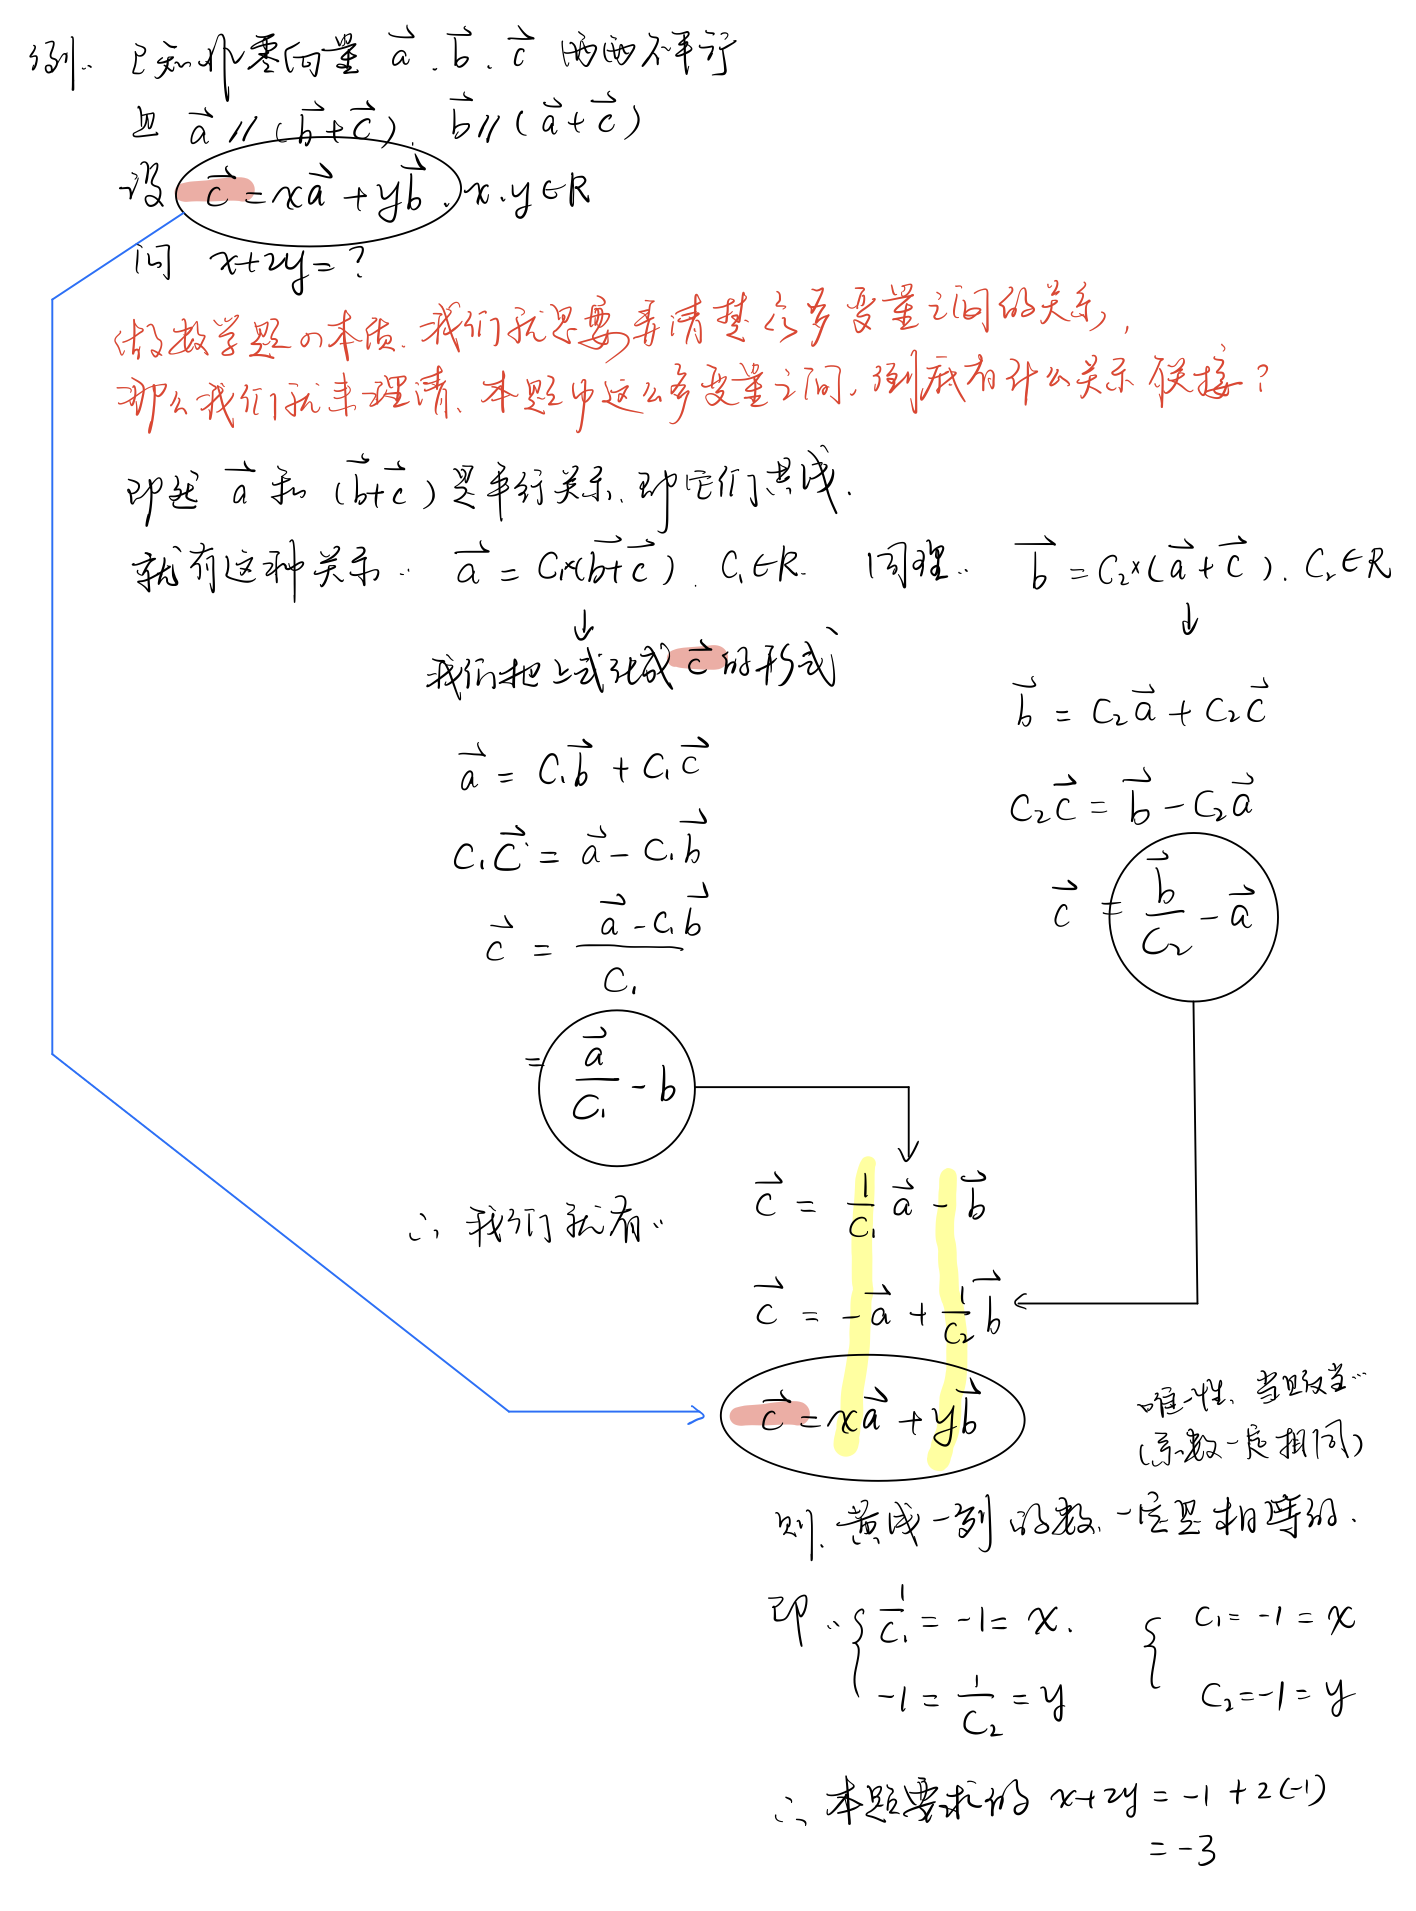 例.. 已知非零向量 a⃗. b⃗. c⃗ 两两不平行
且 a⃗ // (b⃗+c⃗). b⃗ // (a⃗+c⃗)
设 c⃗ = xa⃗ + yb⃗. x.y∈R
问 x+2y=?
做数学题の本质. 我们就是要弄清楚众多变量之间的关系,
那么我们就来理清、本题中这么多变量之间, 到底有什么关系联接?
即然 a⃗ 和 (b⃗+c⃗) 是平行关系. 即它们共线.
就有这种关系.. a⃗ = C₁×(b⃗+c⃗). C₁∈R. 同理.. b⃗ = C₂×(a⃗+c⃗). C₂∈R
↓ ↓
我们把上式化成 c⃗ 的形式
a⃗ = C₁b⃗ + C₁c⃗
C₁c⃗ = a⃗ - C₁b⃗
c⃗ = (a⃗ - C₁b⃗)/C₁
= a⃗/C₁ - b
b⃗ = C₂a⃗ + C₂c⃗
C₂c⃗ = b⃗ - C₂a⃗
c⃗ = b⃗/C₂ - a⃗
∴ 我们就有..
c⃗ = 1/C₁ a⃗ - b⃗
c⃗ = -a⃗ + 1/C₂ b⃗
c⃗ = xa⃗ + yb⃗
唯一性. 当且仅当...
(系数一定相同)
则. 黄线一列的数. 一定是相等的.
即.. { 1/C₁ = -1 = x. { C₁ = -1 = x
-1 = 1/C₂ = y C₂ = -1 = y
∴ 本题要求的 x+2y = -1 + 2(-1)
= -3